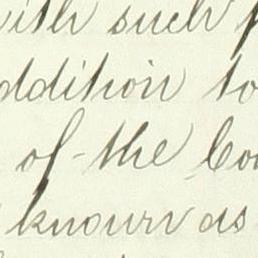 with such
addition to
of the Co
known as